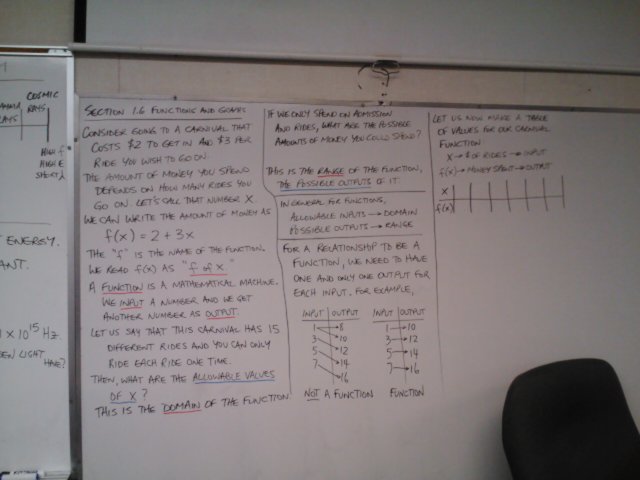 COSMIC
RAYS
HIGH f
HIGH E
SHORT λ
ENERGY.
ANT.
1 x 10^15 Hz.
EEN LIGHT
HAVE?
SECTION 1.6 FUNCTIONS AND GRAPHS
CONSIDER GOING TO A CARNIVAL THAT
COSTS $2 TO GET IN AND $3 PER
RIDE YOU WISH TO GO ON.
THE AMOUNT OF MONEY YOU SPEND
DEPENDS ON HOW MANY RIDES YOU
GO ON. LET'S CALL THAT NUMBER X.
WE CAN WRITE THE AMOUNT OF MONEY AS
f(x) = 2 + 3x
THE "f" IS THE NAME OF THE FUNCTION.
WE READ f(x) AS "f OF X."
A FUNCTION IS A MATHEMATICAL MACHINE.
WE INPUT A NUMBER AND WE GET
ANOTHER NUMBER AS OUTPUT.
LET US SAY THAT THIS CARNIVAL HAS 15
DIFFERENT RIDES AND YOU CAN ONLY
RIDE EACH RIDE ONE TIME.
THEN, WHAT ARE THE ALLOWABLE VALUES
OF X?
THIS IS THE DOMAIN OF THE FUNCTION.
IF WE ONLY SPEND ON ADMISSION
AND RIDES, WHAT ARE THE POSSIBLE
AMOUNTS OF MONEY YOU COULD SPEND?
THIS IS THE RANGE OF THE FUNCTION,
THE POSSIBLE OUTPUTS OF IT.
IN GENERAL FOR FUNCTIONS,
ALLOWABLE INPUTS → DOMAIN
POSSIBLE OUTPUTS → RANGE
FOR A RELATIONSHIP TO BE A
FUNCTION, WE NEED TO HAVE
ONE AND ONLY ONE OUTPUT FOR
EACH INPUT. FOR EXAMPLE,
INPUT OUTPUT INPUT OUTPUT
1 8 1 → 10
3 10 3 → 12
5 12 5 → 14
7 14 7 → 16
16
NOT A FUNCTION FUNCTION
LET US NOW MAKE A TABLE
OF VALUES FOR OUR CARNIVAL
FUNCTION
X → # OF RIDES → INPUT
f(x) → MONEY SPENT → OUTPUT
X
f(x)